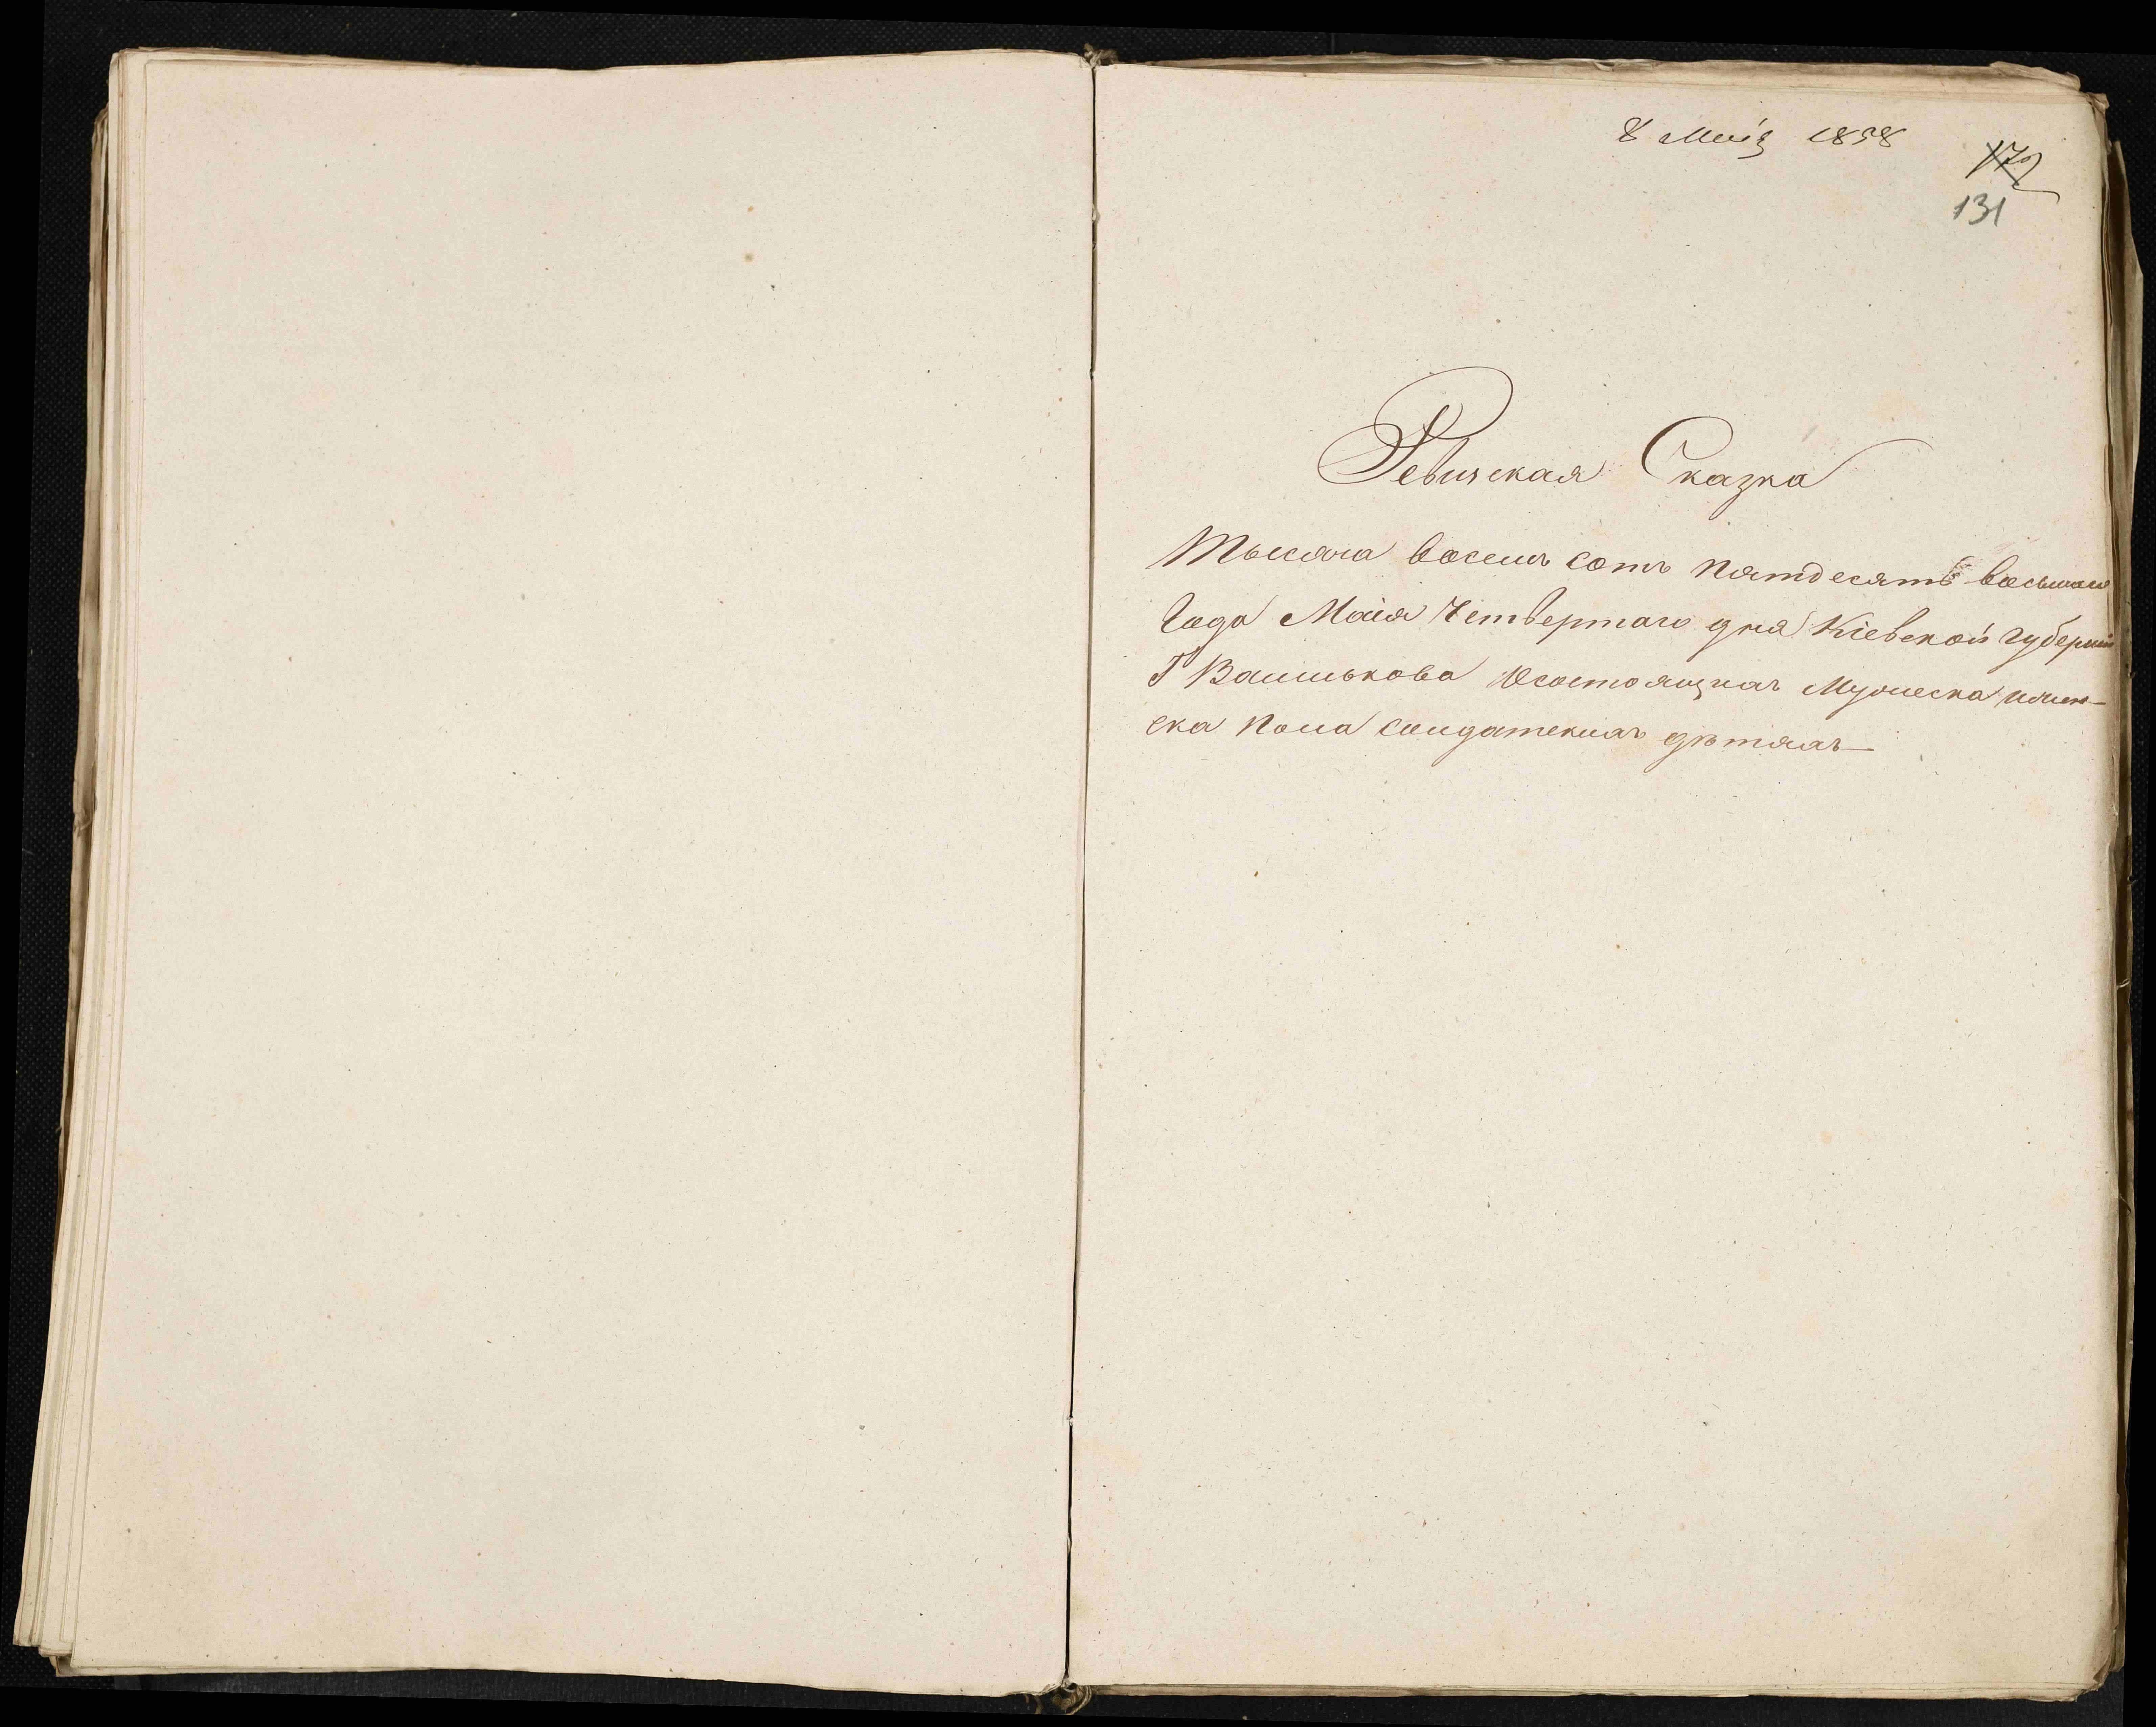 8 Маія 1858
172
131
Ревизская Сказка
Тысяча восемь сотъ пятдесятъ восьмаго
года Маія Четвертаго дня Кіевской губерніи
Г Василькова о состоящихъ Мужеска и жен-
ска пола солдатскихъ дѣтяхъ